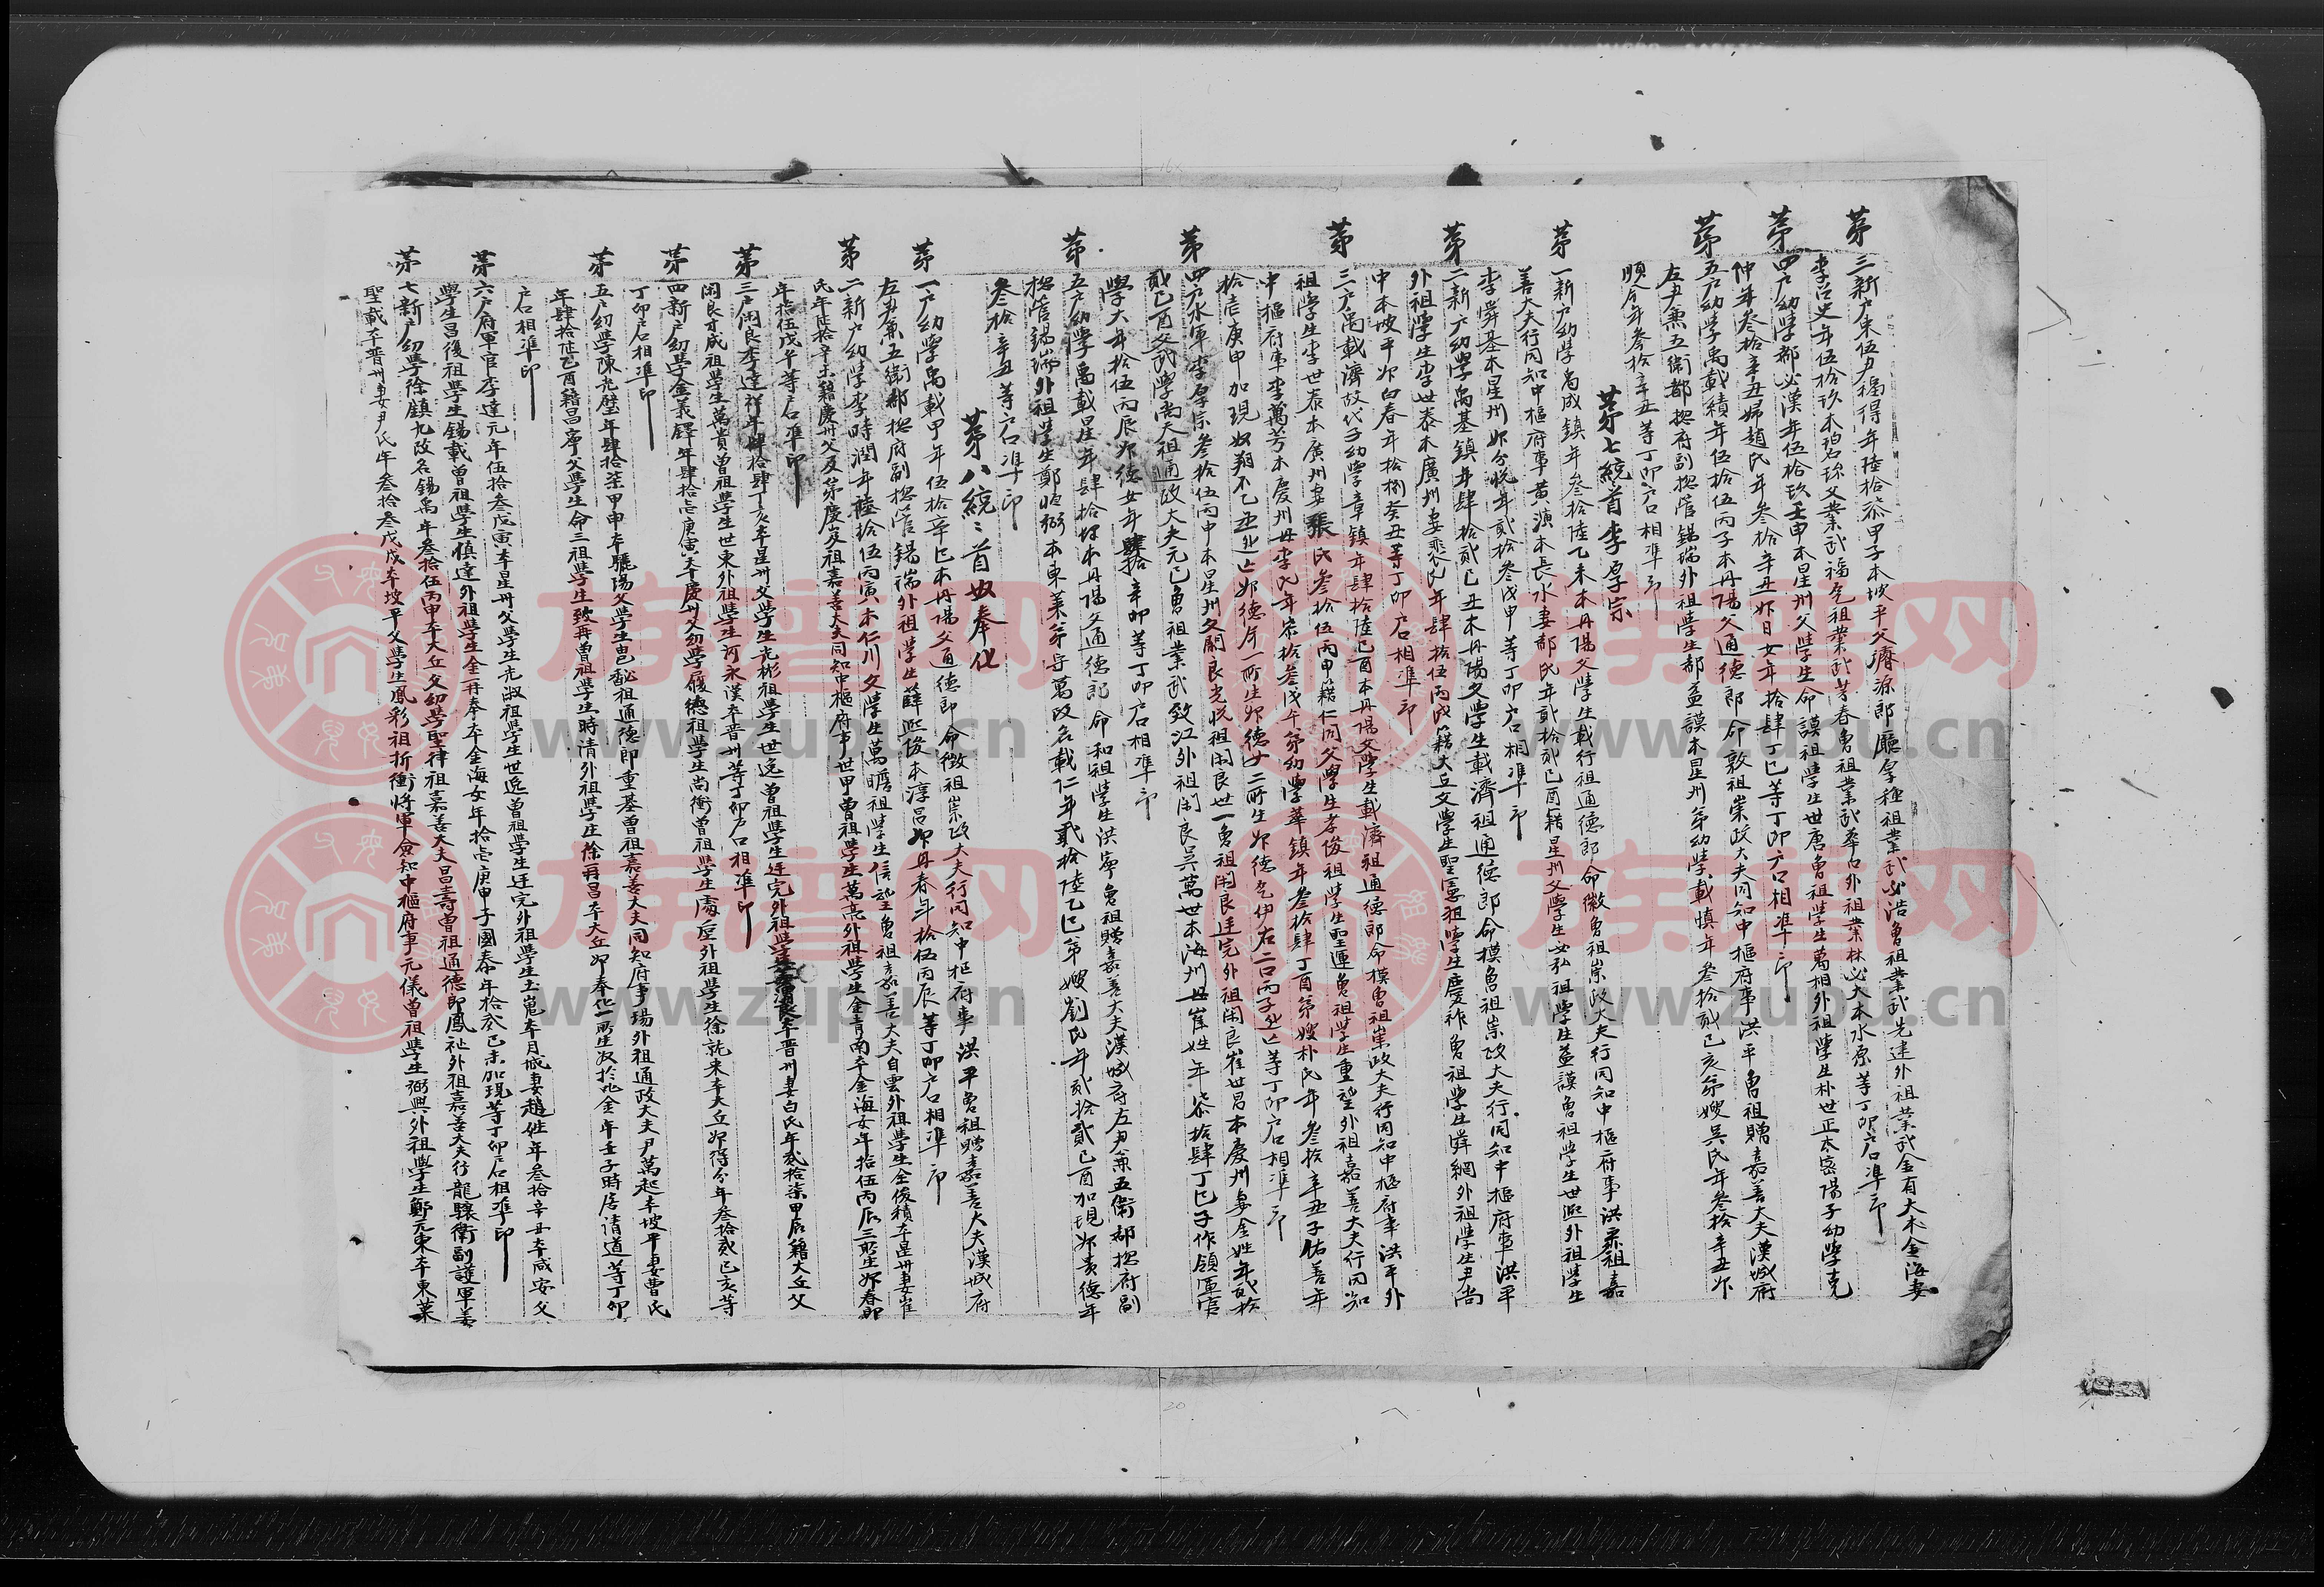 第三新戶朱伍尹福得年陸拾叅甲子本坡平父濟源郎廳厚種祖業武必浩曾祖業武先達外祖業武金有大本金海妻
李召史年伍拾玖本碧珍父業武福先祖業武芳春曾祖業武奉白外祖業林必大本水原等丁卯戶口準印
第四戶幼學都必漢年伍拾玖壬申本星州父學生命謨祖學生世唐曾祖學生萬相外祖學生朴世正本密陽子幼學克
仲年叄拾辛丑婦趙氏年叄拾辛丑奴日女年拾肆丁巳等丁卯戶口相準印
第五戶幼學禹載績年伍拾伍丙子本丹陽父通德郎命敦祖崇政大夫同知中樞府事洪平曾祖贈嘉善大夫漢城府
左尹兼五衛都揔府副揔管錫瑞外祖學生都益謨本星州弟幼學載慎年叄拾貳己亥弟嫂吳氏年叄拾辛丑奴
順今年叄拾辛丑等丁卯戶口相準印
第七統首李厚宗
第一新戶幼學禹成鎮年叄拾陸乙未本丹陽父學生載行祖通德郎命徽曾祖崇政大夫行同知中樞府事洪
善大夫行同知中樞府事黃演本長水妻都氏年貳拾貳己酉籍星州父學生必弘祖學生益謨曾祖學生世熙外祖學生
李舜基本星州奴分悅年貳拾叄戊申等丁卯戶口相準印
第二新戶幼學禹基鎮年肆拾貳己丑本丹陽父學生載濟祖通德郎命模曾祖崇政大夫行同知中樞府事洪平
外祖學生李世泰本廣州妻裵氏年肆拾伍丙戌籍大丘父學生聖憲祖學生慶祚曾祖學生舜綱外祖學生尹尚
中本坡平奴白春年拾捌癸丑等丁卯戶口相準印
第三戶禹載濟故代子幼學章鎮年肆拾陸乙酉本丹陽父學生載濟祖通德郎命模曾祖崇政大夫行同知中樞府事洪平外
祖學生李世泰本廣州妻張氏叄拾伍丙申籍仁同父學生孝俊祖學生聖運曾祖學生重望外祖嘉善大夫行同知
中樞府事李萬芳本慶州母李氏年柒拾叄戊午弟幼學華鎮年叄拾肆丁酉弟嫂朴氏年叄拾辛丑子佑善年
拾壱庚申加現奴翔不乙丑逃亡奴德年一所生奴德女二所生奴德乞伊右二口丙子逃亡等丁卯戶口相準印
第四戶水軍李厚宗叄拾伍丙申本星州父閑良光悅祖閑良世一曾祖閑良廷完外祖閑良崔世昌本慶州妻金姓年貳拾
貳己酉父武學尚天祖通政大夫元已曾祖業武致江外祖閑良吳萬世本海州母崔姓年柒拾肆丁巳子作領軍官
學大年拾伍丙辰奴德女年肆拾辛卯等丁卯戶口相準印
第五戶幼學禹載星年肆拾 本丹陽父通德郎命和祖學生洪寧曾祖贈嘉善大夫漢城府左尹兼五衛都揔府副
揔管錫瑞外祖學生鄭昤弼本東萊弟學萬改名載仁年貳拾陸乙巳弟嫂劉氏年貳拾貳己酉加現奴貴德年
叄拾辛丑等戶口準印
第八統統首奴奉化
第一戶幼學禹載甲年伍拾辛巳本丹陽父通德郎命徵祖崇政大夫行同知中樞府事洪平曾祖贈嘉善大夫漢城府
左尹兼五衛都揔府副揔管錫瑞外祖學生薛熙俊本淳昌奴丹春年拾伍丙辰等丁卯戶口相準印
第二新戶幼學李時潤年陸拾伍丙寅本仁川父學生萬曕祖學生信望曾祖嘉善大夫自雲外祖學生全俊積本星州妻崔
氏年陸拾辛未籍慶州父及第慶岌祖嘉善大夫同知中樞府事世甲曾祖學生萬亮外祖學生金青南本金海女年拾伍丙辰三所生奴春郎
年拾伍戊午等戶口準印
第三戶閑良李達祥年肆拾肆丁亥本星州父學生光彬祖學生世逸曾祖學生廷完外祖學生 本晋州妻白氏年貳拾柒甲辰籍大丘父
閑良才成祖學生萬貴曾祖學生世東外祖學生河永漢本晋州等丁卯戶口相準印
第四新戶幼學金義鐸年肆拾壱庚寅本慶州父幼學履德祖學生尚衡曾祖學生處屋外祖學生徐就來本大丘奴得分年叄拾貳己亥等
丁卯戶口相準印
第五戶幼學陳光璧年肆拾柒甲申本驪陽父學生 祖通德郎重基曾祖嘉善大夫同知府事瑒外祖通政大夫尹萬起本坡平妻曹氏
年肆拾陸乙酉籍昌寧父學生命三祖學生致再曾祖學生時清外祖學生徐再昌本大丘奴奉化一所生奴於屯金年壬子時居清道等丁卯
戶口相準印
第六戶府軍官李達元年伍拾叄戊寅本星州父學生光淑祖學生世逸曾祖學生廷完外祖學生 本月城妻趙姓年叄拾辛丑本咸安父
學生昌後祖學生錫載曾祖學生慎達外祖學生金再奉本金海女年拾壱庚申子國泰年拾貳己未加現等丁卯戶口相準印
第七新戶幼學徐鎮九改名錫禹年叄拾伍丙申本大丘父幼學聖律祖嘉善大夫昌壽曾祖通德郎鳳祉外祖嘉善大夫行龍驤衛副護軍姜
聖載本晋州妻尹氏年叄拾叄戊戌本坡平父學生鳳彩祖折衝將軍僉知中樞府事元儀曾祖學生弼興外祖學生鄭元東本東萊
族譜网
www.zupu.cn
族譜网
www.zupu.cn
族譜网
www.zupu.cn
族譜网
www.zupu.cn